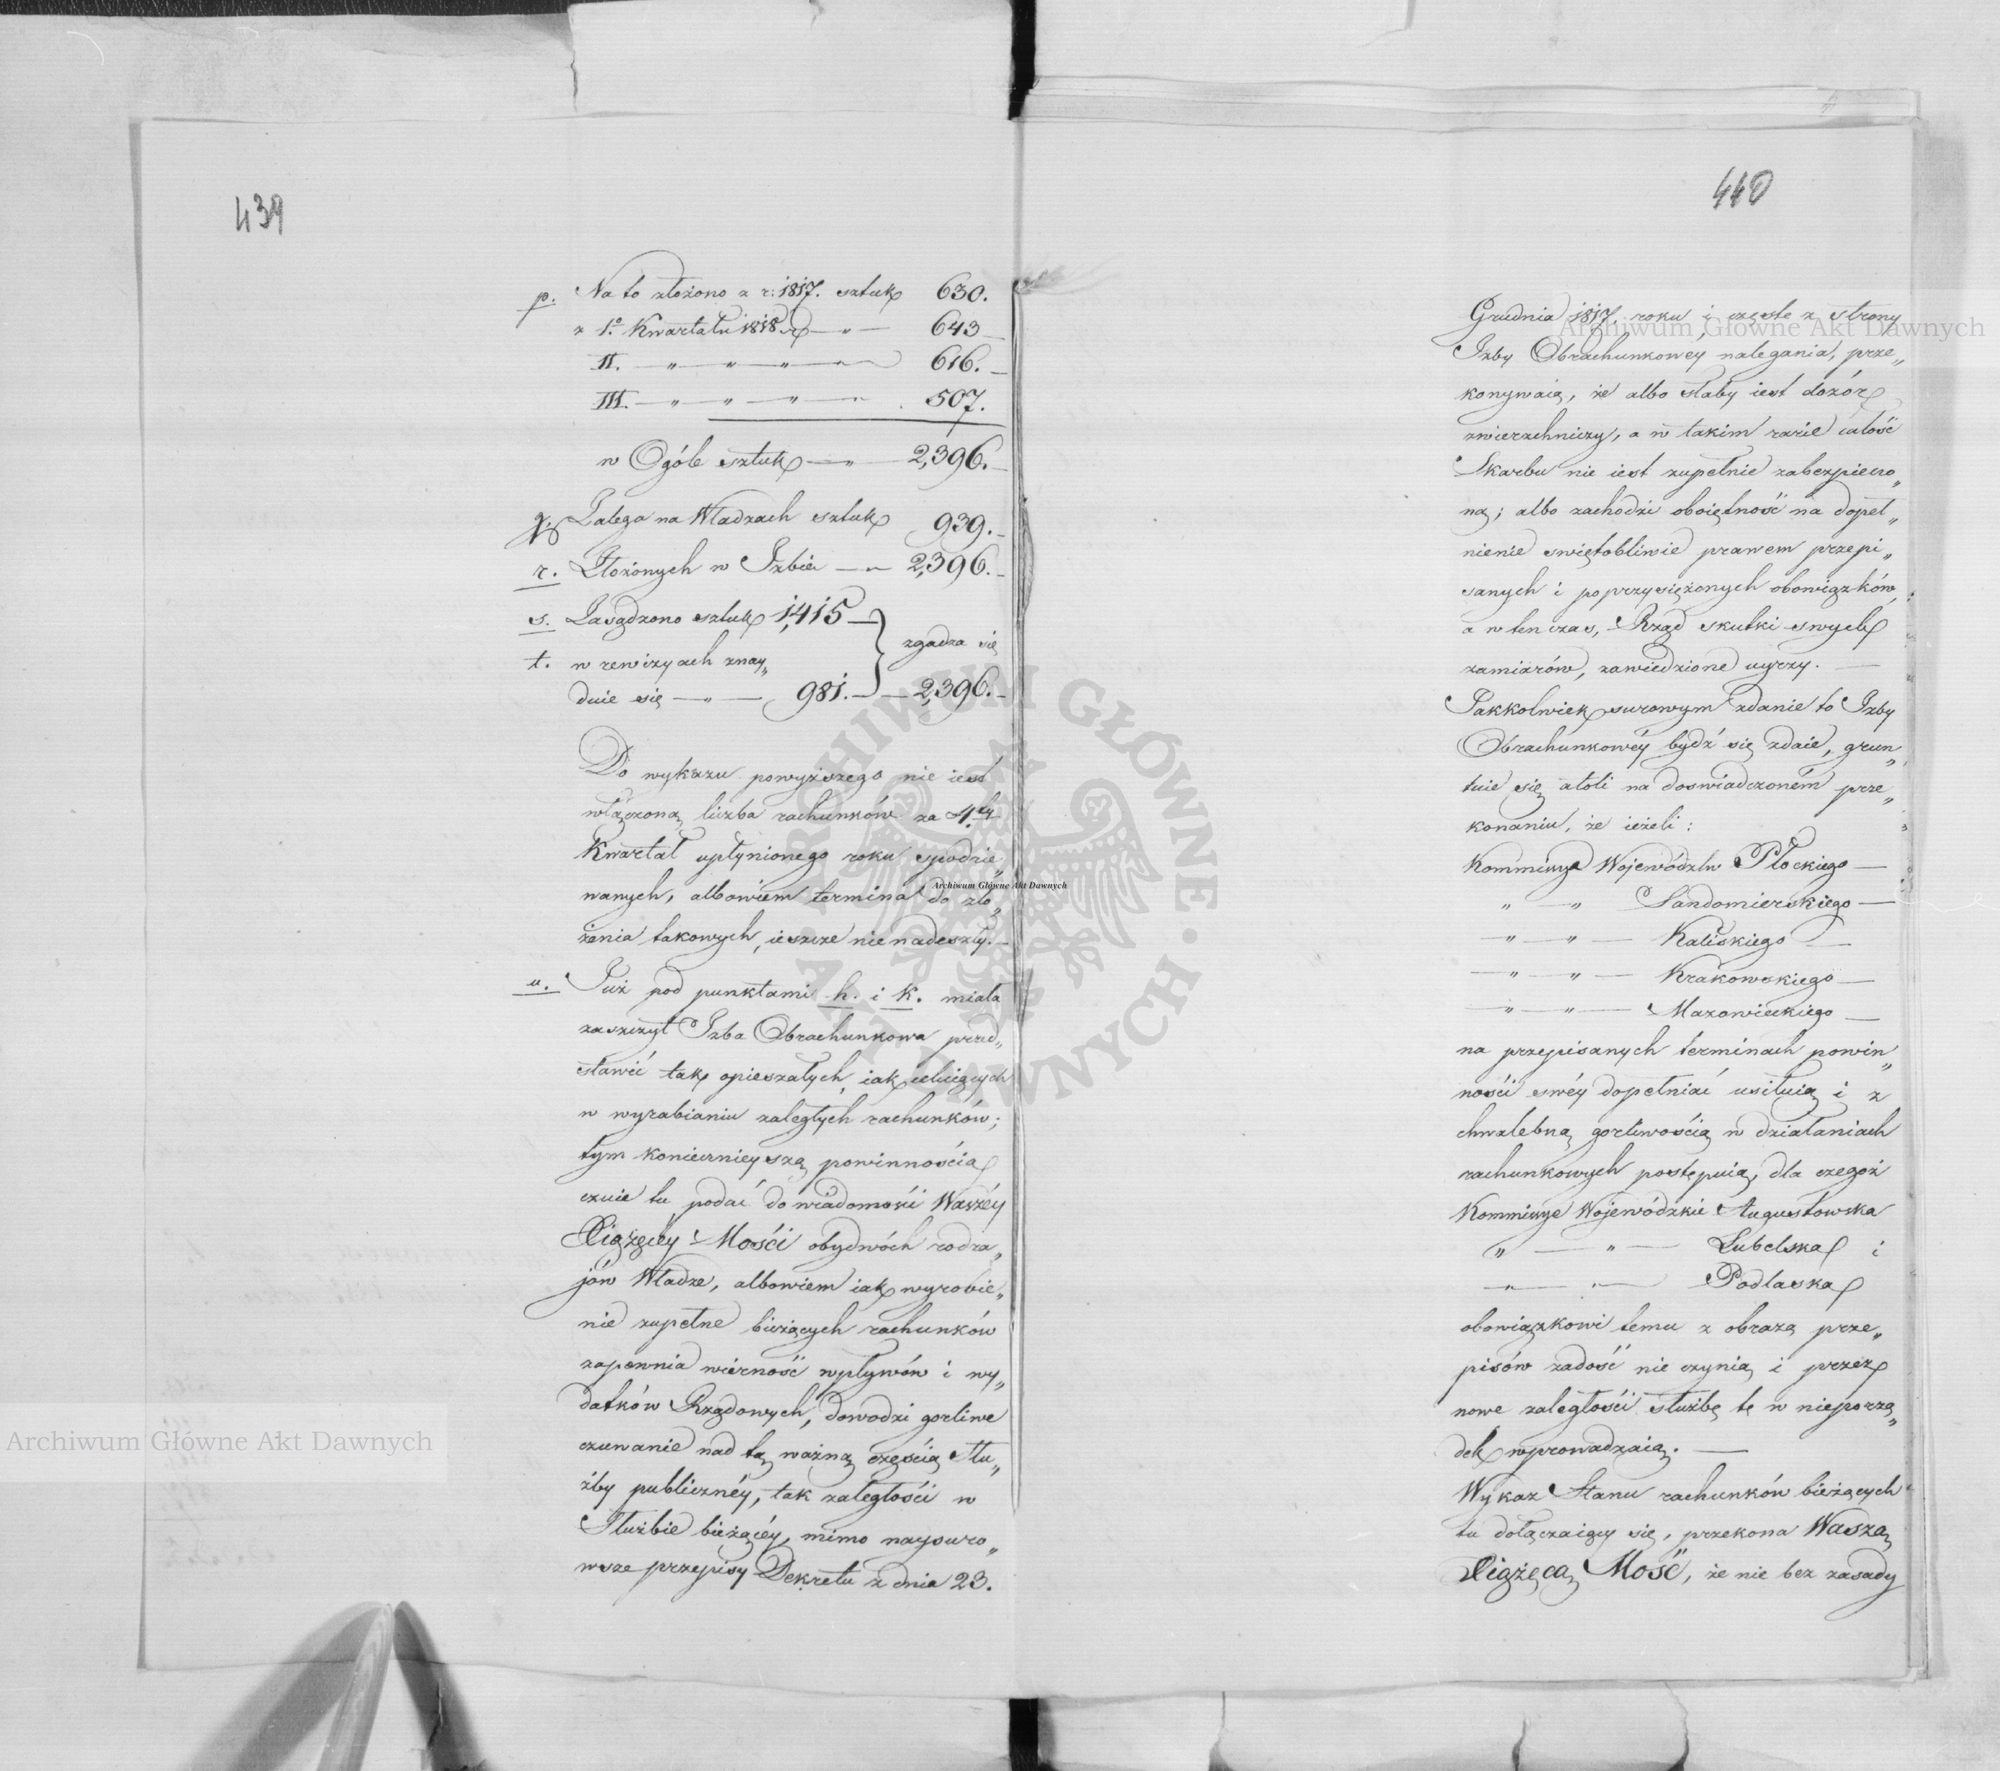 439
p. Na to złożono z r: 1817. sztuk 630.
z 1º Kwartału 1818 r. — „ — 643 —
II. — „ — „ — „ — „ — 616. —
III. — „ — „ — „ — „ . 507.
w Ogóle sztuk — „ — 2,396. —
q. Zalega na Władzach sztuk 939. —
r. Złożonych w Izbie — „ — 2,396. —
s. Zasądzono sztuk 1,415 —
zgadza się
t. w rewizyach znay„
duie się — „ — 981. — — 2,396. —
Do wykazu powyższego nie iest
włączona liczba rachunków za 4ty
Kwartał upłynionego roku spodzie„
wanych, albowiem termina do zło„
żenia takowych, ieszcze nie nadeszły. —
u. Już pod punktami h. i k. miała
zaszczyt Izba Obrachunkowa przed„
stawić tak opieszałych, iak celuiących
w wyrabianiu zaległych rachunków;
tym koniecznieyszą powinnością
czuie tu podać do wiadomości Waszéy
Xiążęcéy Mości obydwóch rodza„
jów Władze, albowiem iak wyrobie„
nie zupełne bieżących rachunków
zapewnia wierność wpływów i wy„
datków Rządowych, dowodzi gorliwe
czuwanie nad tą ważną częścią słu„
żby publicznéy, tak zaległości w
Służbie bieżącéy, mimo naysuro„
wsze przepisy Dekretu z dnia 23.
440
Grudnia 1817. roku, i częste z strony
Izby Obrachunkowey nalegania, prze„
konywaią, że albo słaby iest dozór
zwierzchniczy, a w takim razie całość
Skarbu nie iest zupełnie zabezpieczo„
ną; albo zachodzi oboiętność na dopeł„
nienie świętobliwie prawem przepi„
sanych i poprzysiężonych obowiązków,
a w ten czas, Rząd skutki swych
zamiarów, zawiedzione uyrzy. —
Jakkolwiek surowym zdanie to Izby
Obrachunkowéy bydź się zdaie, grun„
tuie się atoli na doświadczoném prze„
konaniu, że ieżeli:
Kommissya Wojewódzlw Płockiego —
„ — „ Sandomierskiego —
— „ — „ — Kaliskiego —
— „ — „ — Krakowskiego —
— „ — „ — Mazowieckiego —
na przepisanych terminach powin„
ności swéy dopełniać usiłuią i z
chwalebną gorliwością w działaniach
rachunkowych postępuią, dla czegoż
Kommissye Wojewódzkie Augustowska
„ — „ — Lubelska i
— „ — „ — Podlaska
obowiązkowi temu z obrazą prze„
pisów zadość nie czynią i przez
nowe zaległości służbę tę w nieporzą„
dek wprowadzaią. —
Wykaz Stanu rachunków bieżących
tu dołączaiący się, przekona Waszą
Xiążęcą Mość, że nie bez zasady
Archiwum Główne Akt Dawnych
Archiwum Główne Akt Dawnych
Archiwum Główne Akt Dawnych
ARCHIWUM GŁÓWNE · AKT DAWNYCH ·